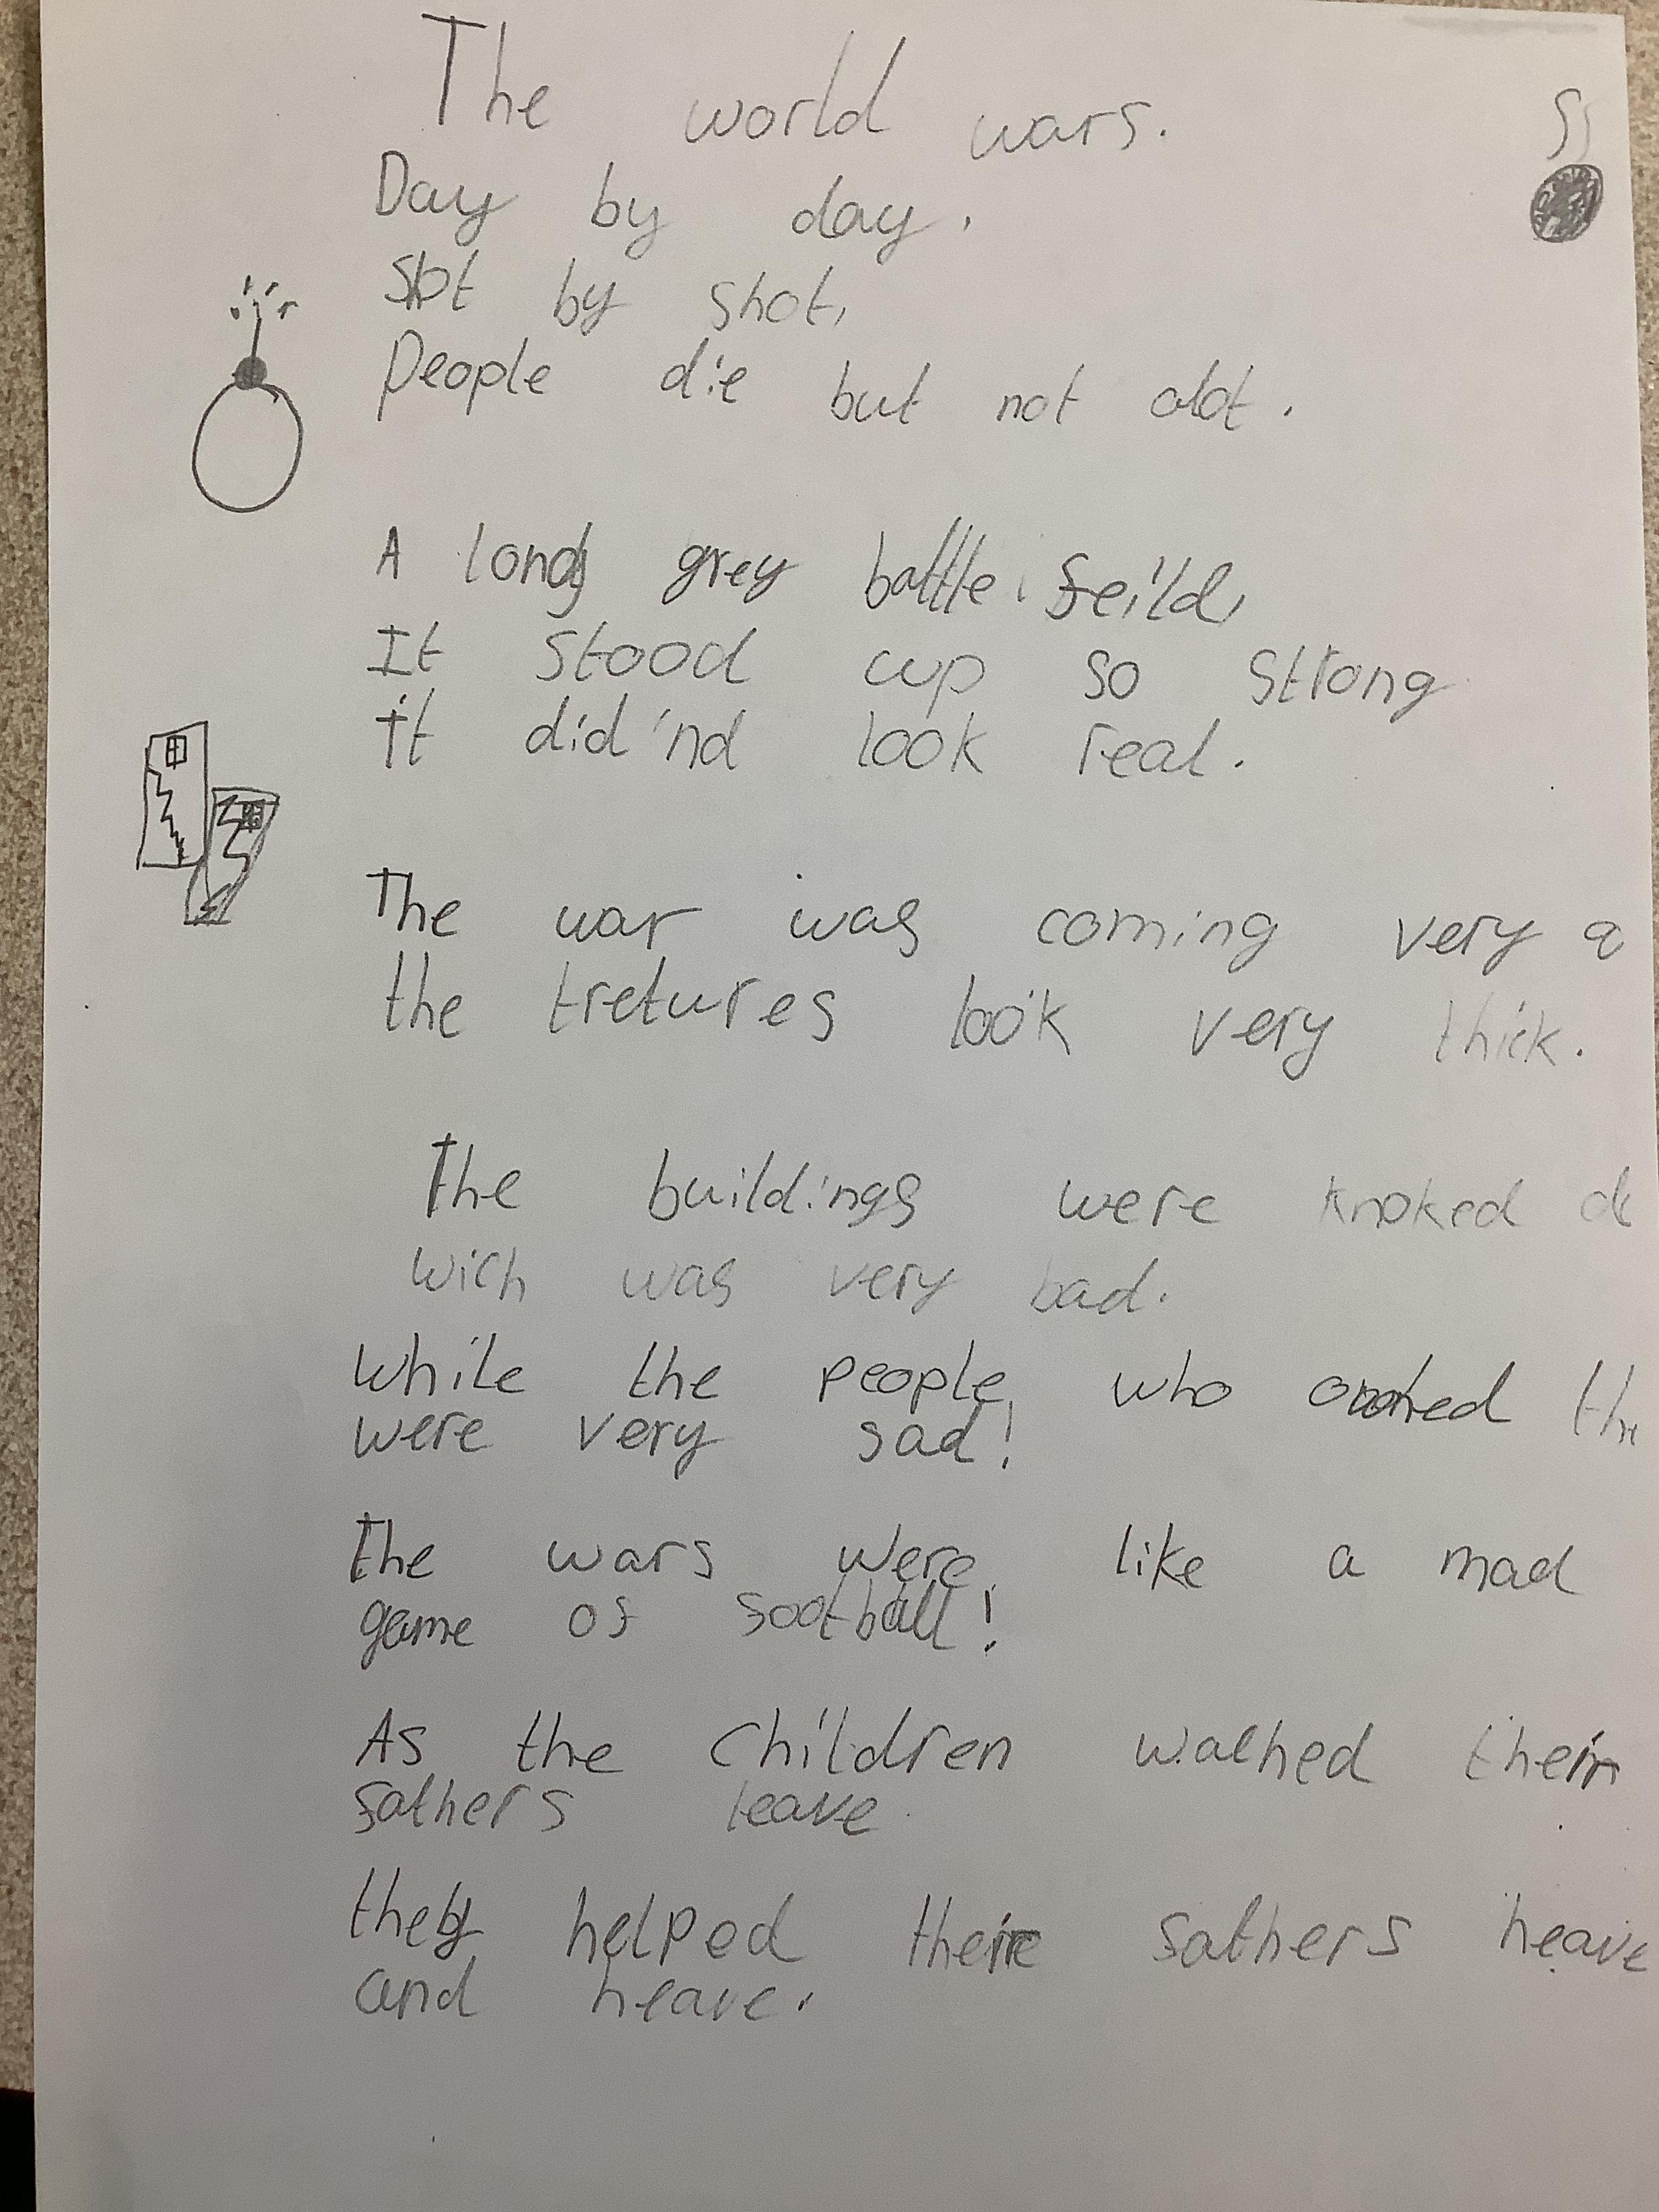 The world wars.
Day by day,
Shot by shot,
People die but not alot.
A long grey battle feild,
It stood up so strong
it did'nd look real.
The war was coming very q
the tretures look very thick.
The buildings were knoked d
wich was very bad.
While the people who owned the
were very sad!
The wars were like a mad
game of football!
As the children walhed their
fathers leave
they helped their fathers heave
and heave.